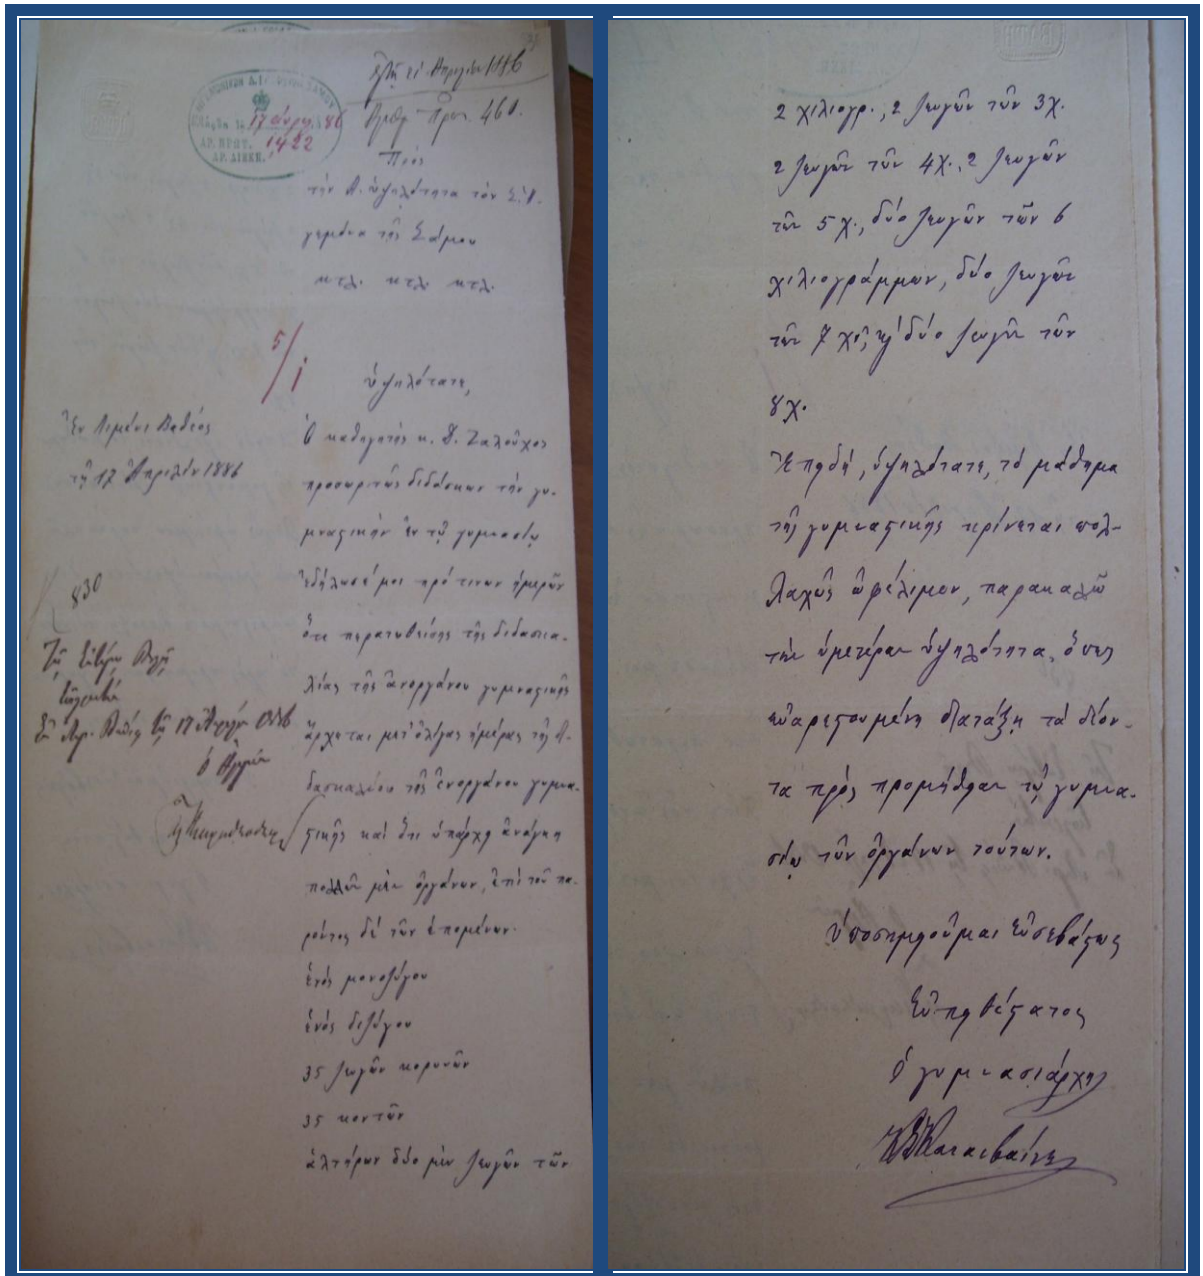 Ἀριθ. Πρωτ. 460.
17 Ἀπρ. 86
ΑΡ. ΠΡΩΤ. 1422
ΑΡ. ΔΙΕΚΠ.
Πρὸς
τὴν Α. ὑψηλότητα τὸν Σ. Ἡ-
γεμόνα τῆς Σάμου
κτλ. κτλ. κτλ.
5/1
Ὑψηλότατε,
Ἐν Λιμένι Βαθέος
τῇ 17 Ἀπριλίου 1886
Ὁ καθηγητὴς κ.
προσωρινῶς διδάσκων τὴν γυ-
μναστικὴν ἐν τῷ γυμνασίῳ
ἐδήλωσέ μοι πρό τινων ἡμερῶν
ὅτι περατωθείσης τῆς διδασκα-
λίας τῆς ἀνοργάνου γυμναστικῆς
ἄρχεται μετ' ὀλίγας ἡμέρας τῆς δι-
δασκαλίας τῆς ἐνοργάνου γυμνα-
στικῆς καὶ ὅτι ὑπάρχει ἀνάγκη
πολλῶν μὲν ὀργάνων, ἐπὶ τοῦ πα-
ρόντος δὲ τῶν ἑπομένων.
ἑνὸς μονοζύγου
ἑνὸς διζύγου
35 ζευγῶν κορυνῶν
35 κοντῶν
ἁλτήρων δύο μὲν ζευγῶν τῶν
830
Ἐν Λιμ. Βαθέος τῇ 17 Ἀπριλίου
ὁ
2 χιλιογρ., 2 ζευγῶν τῶν 3χ.
2 ζευγῶν τῶν 4χ., 2 ζευγῶν
τῶν 5χ., δύο ζευγῶν τῶν 6
χιλιογράμμων, δύο ζευγῶν
τῶν 7 χ. καὶ δύο ζευγῶν τῶν
8χ.
Ἐπειδή, ὑψηλότατε, τὸ μάθημα
τῆς γυμναστικῆς κρίνεται πολ-
λαχῶς ὠφέλιμον, παρακαλῶ
τὴν ὑμετέραν ὑψηλότητα, ὅπως
εὐαρεστουμένη διατάξῃ τὰ δέον-
τα πρὸς προμήθειαν τῷ γυμνα-
σίῳ τῶν ὀργάνων τούτων.
Ὑποσημειοῦμαι εὐσεβάστως
Εὐπειθέστατος
Ὁ γυμνασιάρχης